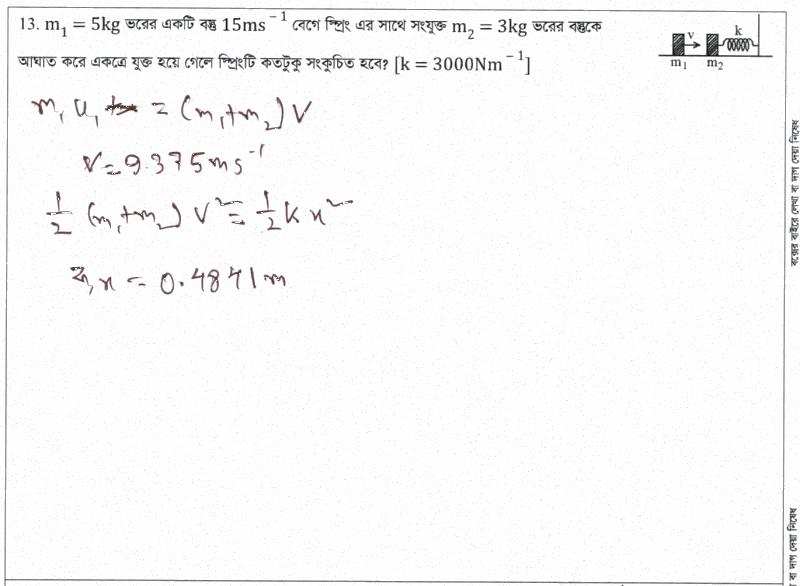 13. m₁ = 5kg ভরের একটি বস্তু 15ms⁻¹ বেগে স্প্রিং এর সাথে সংযুক্ত m₂ = 3kg ভরের বস্তুকে
আঘাত করে একত্রে যুক্ত হয়ে গেলে স্প্রিংটি কতটুকু সংকুচিত হবে? [k = 3000Nm⁻¹]
v k
m₁ m₂
m₁ u₁ = (m₁+m₂) V
V = 9.375 ms⁻¹
1/2 (m₁+m₂) V² = 1/2 K x²
x = 0.4841 m
বক্সের বাইরে লেখা বা দাগ দেয়া নিষেধ
বা দাগ দেয়া নিষেধ